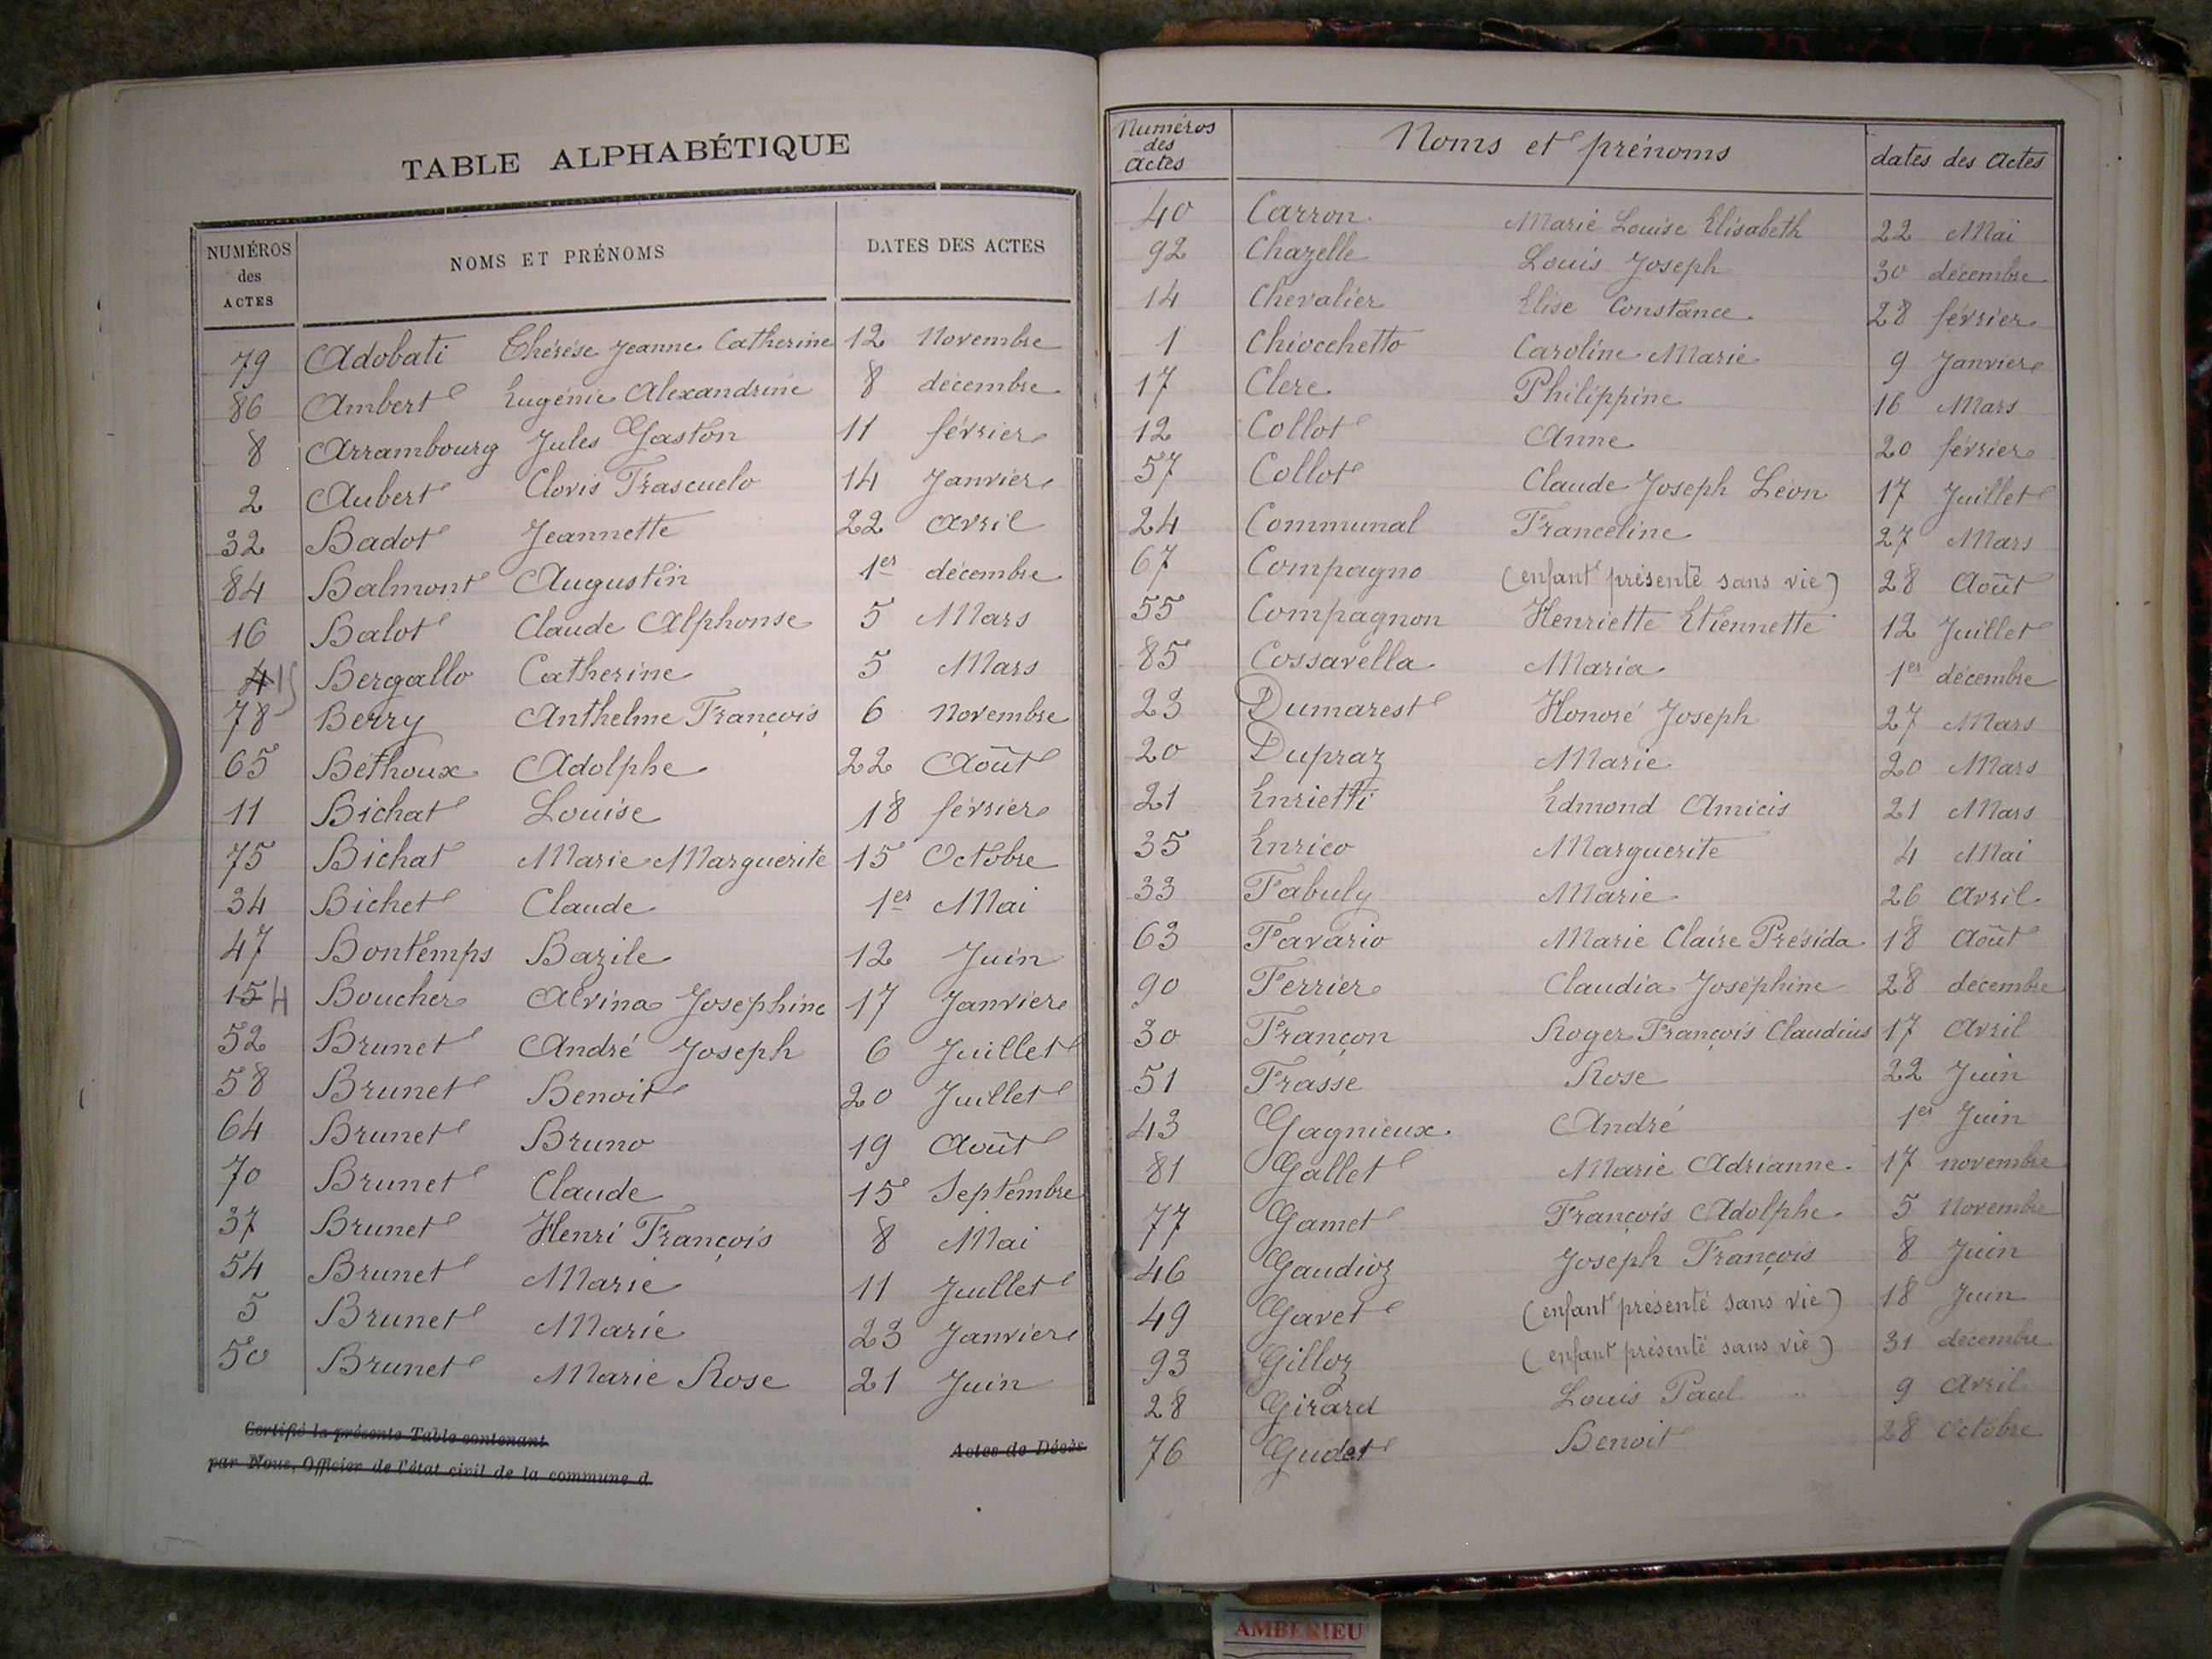 TABLE ALPHABÉTIQUE
NUMÉROS des ACTES NOMS ET PRÉNOMS DATES DES ACTES
79 Adobati Thérèse Jeanne Catherine 12 Novembre
86 Ambert Eugénie Alexandrine 8 décembre
8 Arrambourg Jules Gaston 11 février
2 Aubert Clovis Frascuelo 14 Janvier
32 Badot Jeannette 22 Avril
84 Balmont Augustin 1er décembre
16 Balot Claude Alphonse 5 Mars
4 15 Bergallo Catherine 5 Mars
78 Berry Anthelme François 6 Novembre
65 Béthoux Adolphe 22 Août
11 Bichat Louise 18 février
75 Bichat Marie Marguerite 15 Octobre
34 Bichet Claude 1er Mai
47 Bontemps Bazile 12 Juin
15 4 Boucher Alvina Josephine 17 Janvier
52 Brunet André Joseph 6 Juillet
58 Brunet Benoit 20 Juillet
64 Brunet Bruno 19 Août
70 Brunet Claude 15 Septembre
37 Brunet Henri François 8 Mai
54 Brunet Marie 11 Juillet
5 Brunet Marie 23 Janvier
50 Brunet Marie Rose 21 Juin
Certifié la présente Table contenant Actes de Décès
par Nous, Officier de l'état civil de la commune d
Numéros des Actes Noms et prénoms dates des Actes
40 Carron Marie Louise Elisabeth 22 Mai
92 Chazelle Louis Joseph 30 décembre
14 Chevalier Elise Constance 28 février
1 Chiocchetto Caroline Marie 9 Janvier
17 Clerc Philippine 16 Mars
12 Collot Anne 20 février
57 Collot Claude Joseph Léon 17 Juillet
24 Communal Franceline 27 Mars
67 Compagno (enfant présenté sans vie) 28 Août
55 Compagnon Henriette Etiennette 12 Juillet
85 Cossavella Maria 1er décembre
23 Dumarest Honoré Joseph 27 Mars
20 Dupraz Marie 20 Mars
21 Enrietti Edmond Amicis 21 Mars
35 Enrico Marguerite 4 Mai
33 Fabuly Marie 26 Avril
63 Favario Marie Claire Présida 18 Août
90 Ferrier Claudia Joséphine 28 décembre
30 Françon Roger François Claudius 17 Avril
51 Frasse Rose 22 Juin
43 Gagnieux André 1er Juin
81 Gallet Marie Adrianne 17 novembre
77 Gamet François Adolphe 5 Novembre
46 Gaudioz Joseph François 8 Juin
49 Gavet (enfant présenté sans vie) 18 Juin
93 Gilloz (enfant présenté sans vie) 31 décembre
28 Girard Louis Paul 9 Avril
76 Gudet Benoit 28 Octobre
AMBERIEU